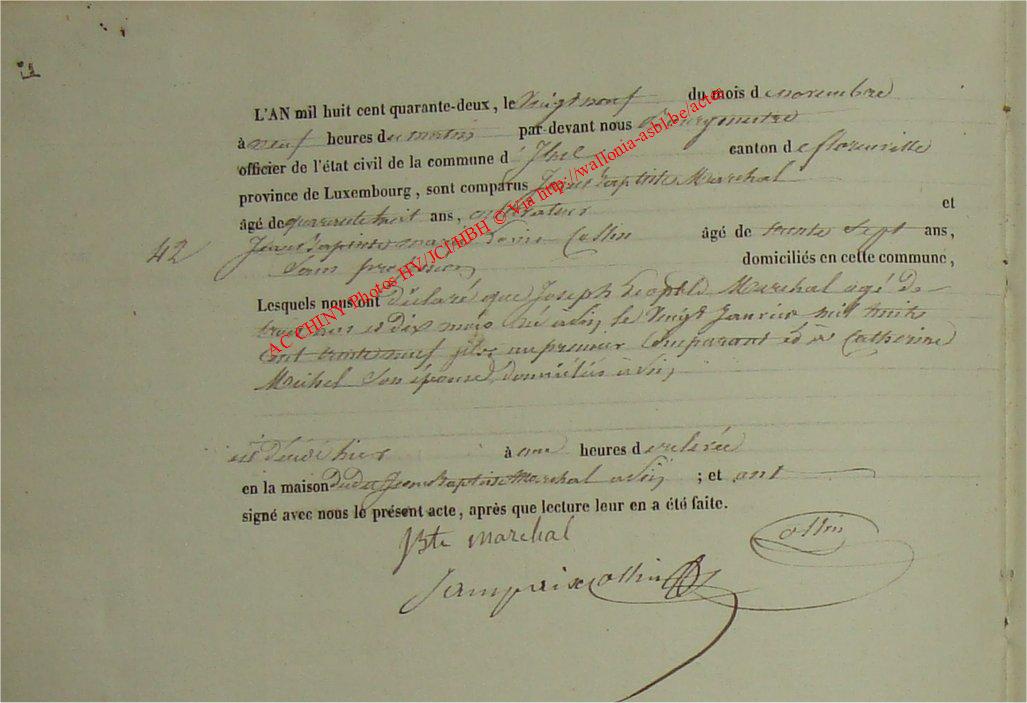 L'AN mil huit cent quarante-deux, le Vingt neuf du mois d novembre
à neuf heures du matin par-devant nous Bourgmestre
officier de l'état civil de la commune d' Izel canton de florenville
province de Luxembourg, sont comparus Jean Baptiste Marchal
âgé de quarante huit ans, cultivateur et
Collin âgé de trente Sept ans,
42
Sans profession domiciliés en cette commune,
Lesquels nous ont déclaré que Joseph Léopold Marchal agé de
trois ans et Dix mois né à le Vingt Janvier mil huit
cent trente neuf fils au premier Comparant et à Catherine
Michel Son épouse domiciliés à
est décédé hier à une heures de relevée
en la maison dudit Jean Baptiste Marchal ; et ont
signé avec nous le présent acte, après que lecture leur en a été faite.
JBte marchal
ollin
Collin
AC CHINY Photos HV/JCI/HBH © Via http://wallonia-asbl.be/actes